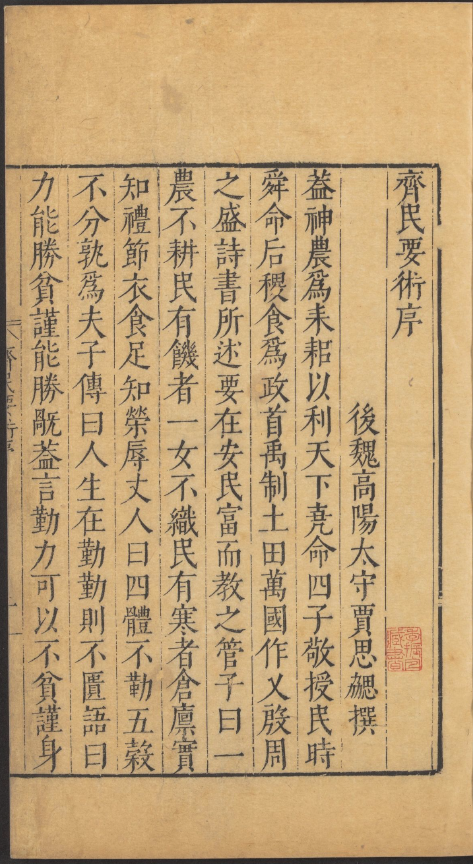 齊民要術序
後魏高陽太守賈思勰撰
葢神農爲耒耜以利天下堯命四子敬授民時
舜命后稷食爲政首禹制土田萬國作乂殷周
之盛詩書所述要在安民富而教之管子曰一
農不耕民有饑者一女不織民有寒者倉廩實
知禮節衣食足知榮辱丈人曰四體不勤五糓
不分孰爲夫子傳曰人生在勤勤則不匱語曰
力能勝貧謹能勝旤葢言勤力可以不貧謹身
齊民要術序
一